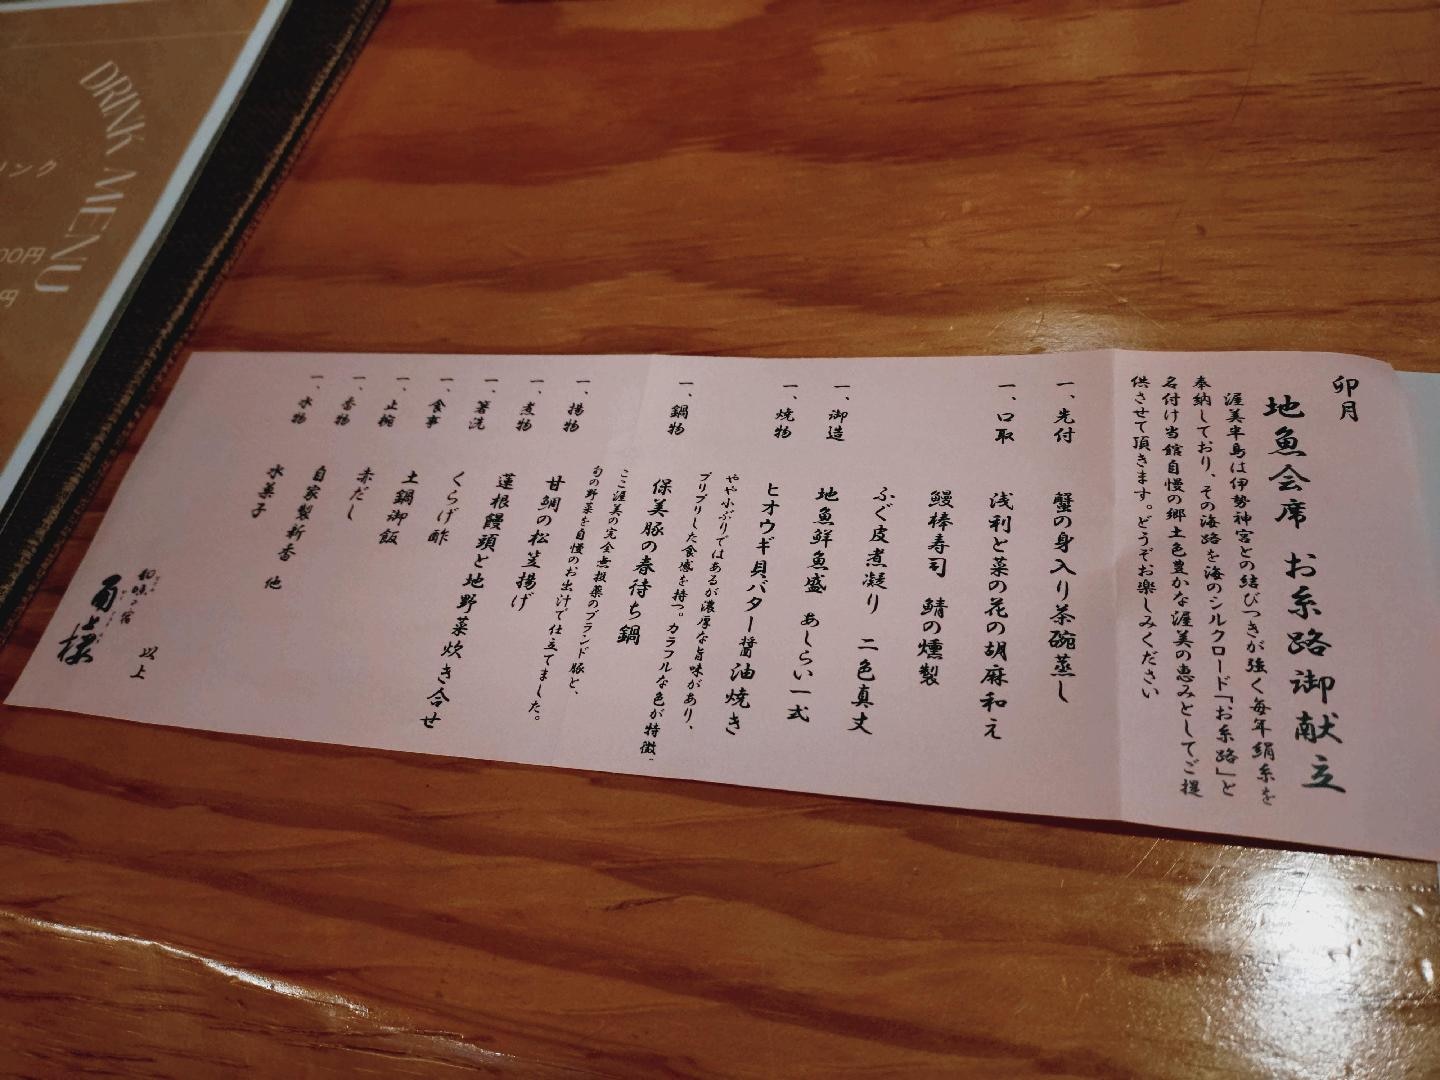 卯月
地魚会席 お糸路御献立
渥美半島は伊勢神宮との結びつきが強く毎年絹糸を
奉納しており、その海路を海のシルクロード「お糸路」と
名付け当館自慢の郷土色豊かな渥美の恵みとしてご提
供させて頂きます。どうぞお楽しみください
一、先付 蟹の身入り茶碗蒸し
一、口取 浅利と菜の花の胡麻和え
鰻棒寿司 鯖の燻製
ふぐ皮煮凝り 二色真丈
一、御造 地魚鮮魚盛 あしらい一式
一、焼物 ヒオウギ貝バター醤油焼き
やや小ぶりではあるが濃厚な旨味があり、
プリプリした食感を持つ。カラフルな色が特徴
一、鍋物 保美豚の春待ち鍋
ここ渥美の完全無投薬のブランド豚と、
旬の野菜を自慢のお出汁で仕立てました。
一、揚物 甘鯛の松笠揚げ
一、煮物 蓮根饅頭と地野菜炊き合せ
一、箸洗 くらげ酢
一、食事 土鍋御飯
一、止椀 赤だし
一、香物 自家製新香 他
一、水物 水菓子
以上
和味の宿
DRINK MENU
リンク
00円
円